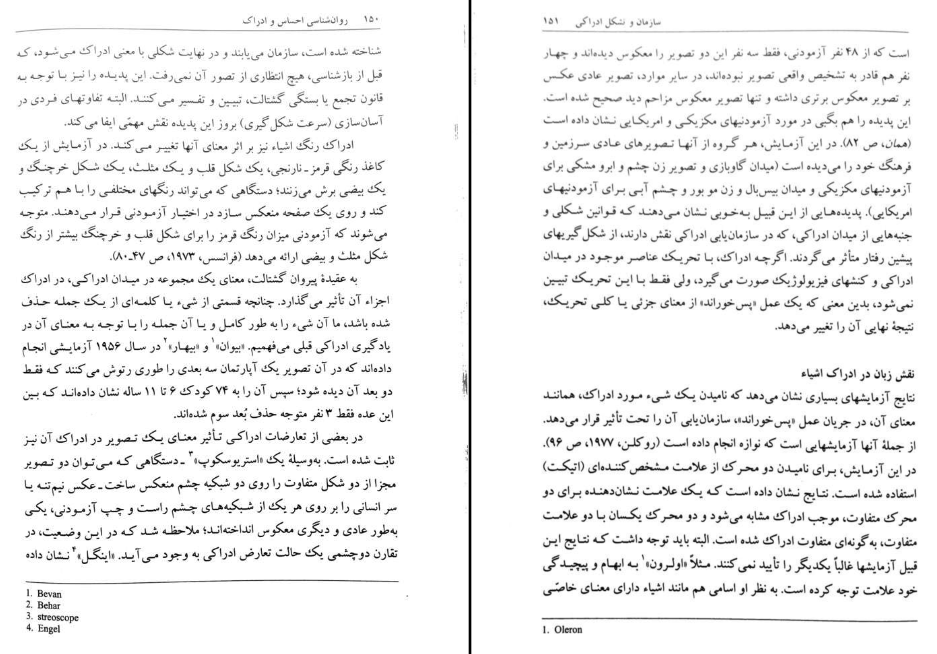 ۱۵۰ روان‌شناسی احساس و ادراک
شناخته شده است، سازمان می‌یابند و در نهایت شکلی با معنی ادراک می‌شود، که
قبل از بازشناسی، هیچ انتظاری از تصور آن نمی‌رفت. این پدیده را نیز با توجه به
قانون تجمع یا بستگی گشتالت، تبیین و تفسیر می‌کنند. البته تفاوتهای فردی در
آسان‌سازی (سرعت شکل‌گیری) بروز این پدیده نقش مهمّی ایفا می‌کند.
ادراک رنگ اشیاء نیز بر اثر معنای آنها تغییر می‌کند. در آزمایش از یک
کاغذ رنگی قرمز ـ نارنجی، یک شکل قلب و یک مثلث، یک شکل خرچنگ و
یک بیضی برش می‌زنند؛ دستگاهی که می‌تواند رنگهای مختلفی را با هم ترکیب
کند و روی یک صفحه منعکس سازد در اختیار آزمودنی قرار می‌دهند. متوجه
می‌شوند که آزمودنی میزان رنگ قرمز را برای شکل قلب و خرچنگ بیشتر از رنگ
شکل مثلث و بیضی ارائه می‌دهد (فرانسس، ۱۹۷۳، ص ۴۷ـ۸۰).
به عقیدهٔ پیروان گشتالت، معنای یک مجموعه در میدان ادراکی، در ادراک
اجزاء آن تأثیر می‌گذارد. چنانچه قسمتی از شیء یا کلمه‌ای از یک جمله حذف
شده باشد، ما آن شیء را به طور کامل و یا آن جمله را با توجه به معنای آن در
یادگیری ادراکی قبلی می‌فهمیم. «بیوان»۱ و «بیهار»۲ در سال ۱۹۵۶ آزمایشی انجام
داده‌اند که در آن تصویر یک آپارتمان سه بعدی را طوری رتوش می‌کنند که فقط
دو بعد آن دیده شود؛ سپس آن را به ۷۴ کودک ۶ تا ۱۱ ساله نشان داده‌اند که بین
این عده فقط ۳ نفر متوجه حذف بُعد سوم شده‌اند.
در بعضی از تعارضات ادراکی تأثیر معنای یک تصویر در ادراک آن نیز
ثابت شده است. به‌وسیلهٔ یک «استریوسکوپ»۳ ـ دستگاهی که می‌توان دو تصویر
مجزا از دو شکل متفاوت را روی دو شبکیه چشم منعکس ساخت ـ عکس نیم‌تنه یا
سر انسانی را بر روی هر یک از شبکیه‌های چشم راست و چپ آزمودنی، یکی
به‌طور عادی و دیگری معکوس انداخته‌اند؛ ملاحظه شد که در این وضعیت، در
تقارن دوچشمی یک حالت تعارض ادراکی به وجود می‌آید. «اینگل»۴ نشان داده
1. Bevan
2. Behar
3. streoscope
4. Engel
سازمان و تشکل ادراکی ۱۵۱
است که از ۴۸ نفر آزمودنی، فقط سه نفر این دو تصویر را معکوس دیده‌اند و چهار
نفر هم قادر به تشخیص واقعی تصویر نبوده‌اند، در سایر موارد، تصویر عادی عکس
بر تصویر معکوس برتری داشته و تنها تصویر معکوس مزاحم دید صحیح شده است.
این پدیده را هم بگبی در مورد آزمودنیهای مکزیکی و امریکایی نشان داده است
(همان، ص ۸۲). در این آزمایش، هر گروه از آنها تصویرهای عادی سرزمین و
فرهنگ خود را می‌دیده است (میدان گاوبازی و تصویر زن چشم و ابرو مشکی برای
آزمودنیهای مکزیکی و میدان بیس‌بال و زن مو بور و چشم آبی برای آزمودنیهای
امریکایی). پدیده‌هایی از این قبیل به‌خوبی نشان می‌دهند که قوانین شکلی و
جنبه‌هایی از میدان ادراکی، که در سازمان‌یابی ادراکی نقش دارند، از شکل‌گیریهای
پیشین رفتار متأثر می‌گردند. اگرچه ادراک، با تحریک عناصر موجود در میدان
ادراکی و کنشهای فیزیولوژیک صورت می‌گیرد، ولی فقط با این تحریک تبیین
نمی‌شود، بدین معنی که یک عمل «پس‌خوراند» از معنای جزئی یا کلی تحریک،
نتیجهٔ نهایی آن را تغییر می‌دهد.
نقش زبان در ادراک اشیاء
نتایج آزمایشهای بسیاری نشان می‌دهد که نامیدن یک شیء مورد ادراک، همانند
معنای آن، در جریان عمل «پس‌خوراند»، سازمان‌یابی آن را تحت تأثیر قرار می‌دهد.
از جملهٔ آنها آزمایشهایی است که نوازه انجام داده است (روکلن، ۱۹۷۷، ص ۹۶).
در این آزمایش، برای نامیدن دو محرک از علامت مشخص‌کننده‌ای (اتیکت)
استفاده شده است. نتایج نشان داده است که یک علامت نشان‌دهنده برای دو
محرک متفاوت، موجب ادراک مشابه می‌شود و دو محرک یکسان با دو علامت
متفاوت، به‌گونه‌ای متفاوت ادراک شده است. البته باید توجه داشت که نتایج این
قبیل آزمایشها غالباً یکدیگر را تأیید نمی‌کنند. مثلاً «اولرون»۱ به ابهام و پیچیدگی
خود علامت توجه کرده است. به نظر او اسامی هم مانند اشیاء دارای معنای خاصّی
1. Oleron